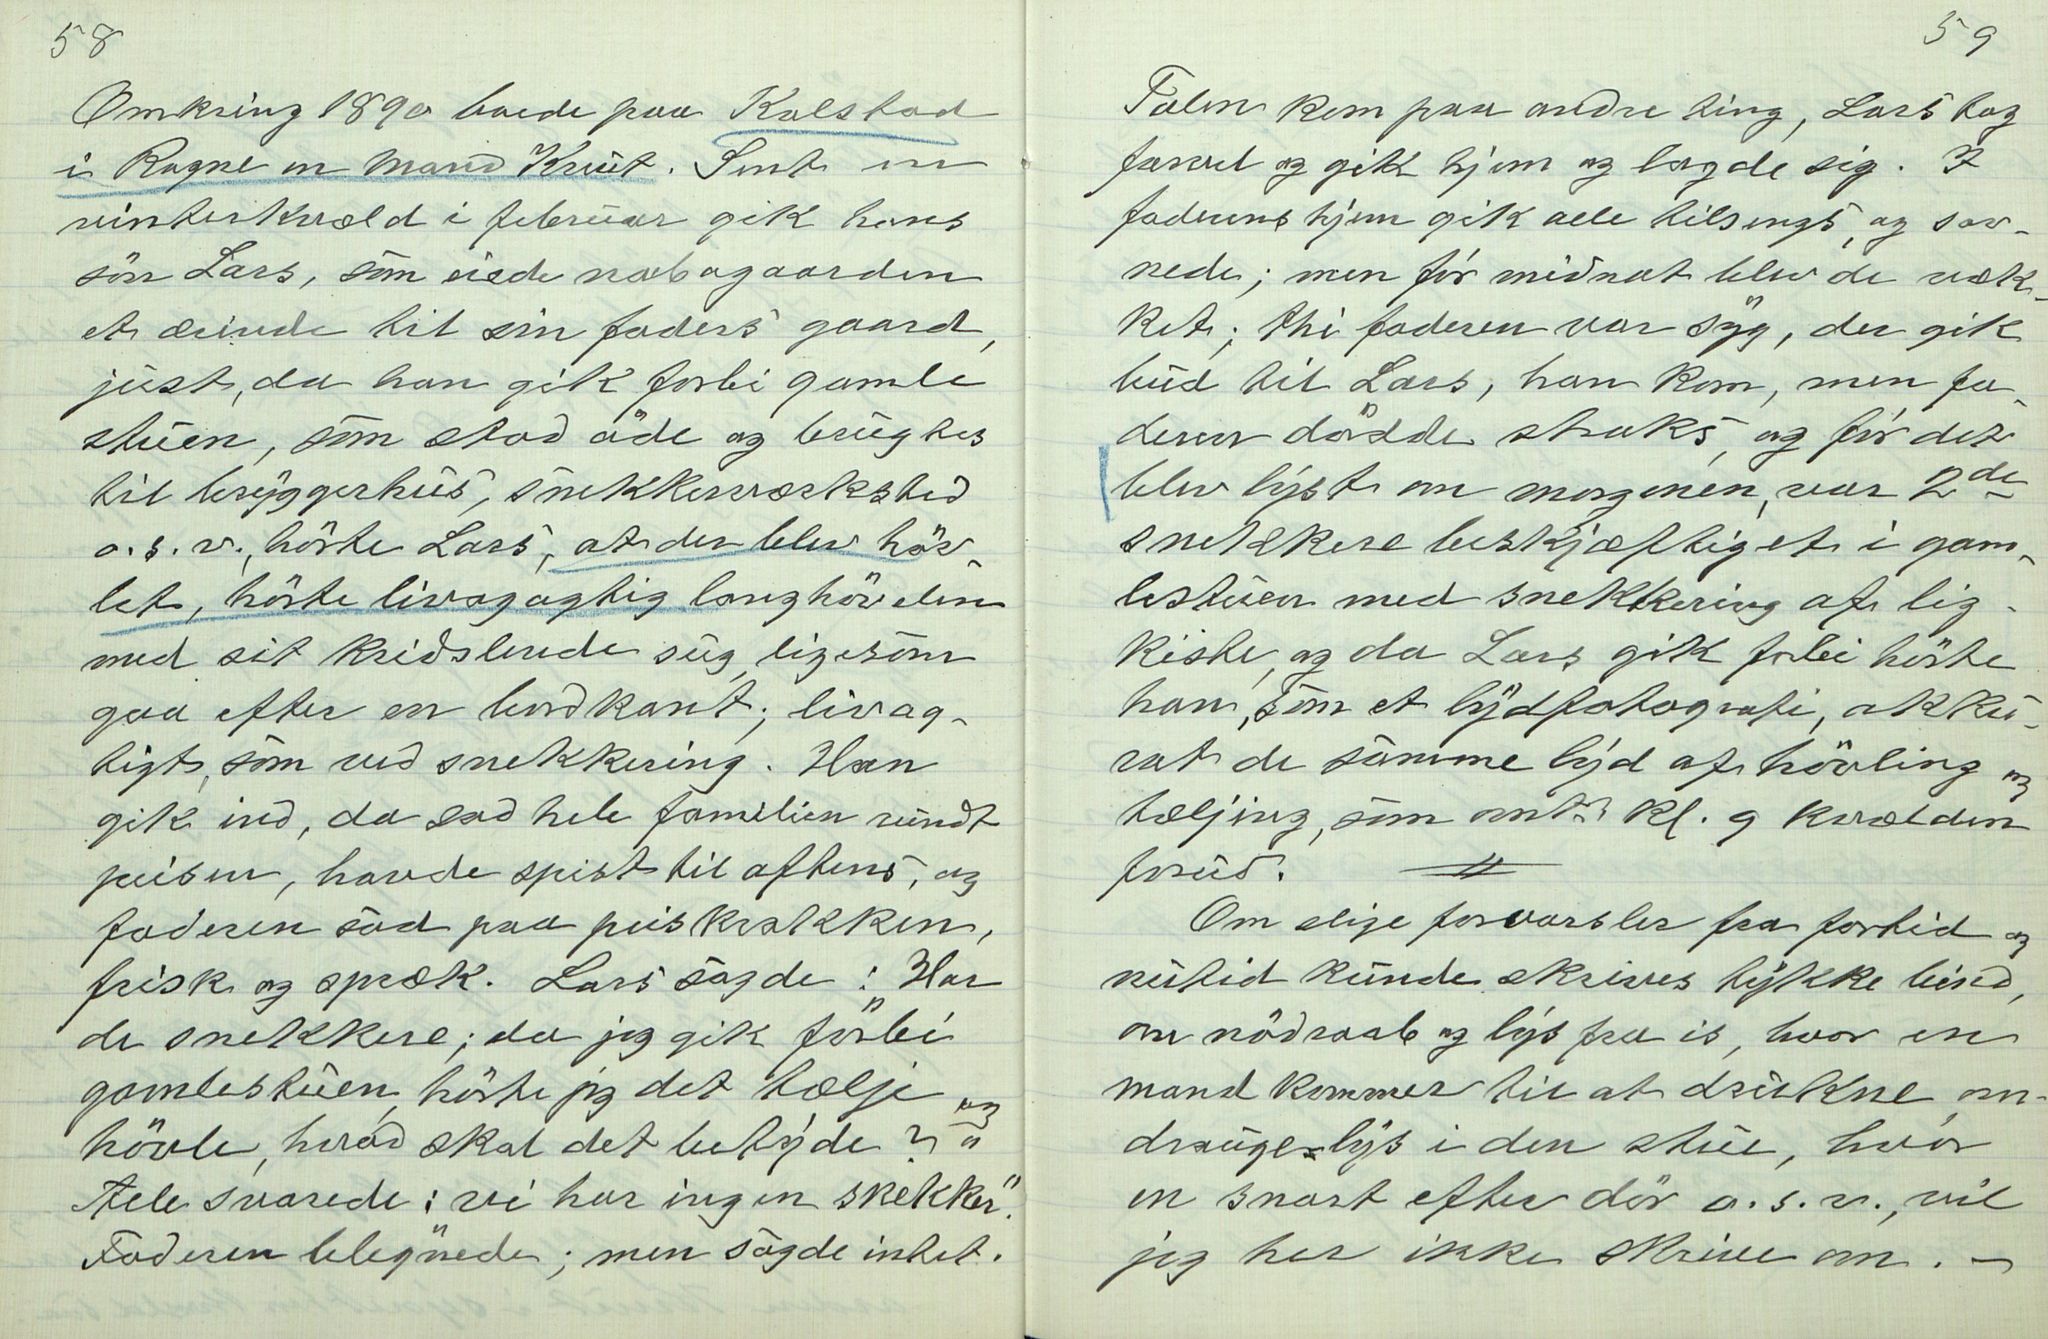 58
Omkring 1890 boede paa Kolstad
i Rogne en mand Knut. Sent en
vinterkvæld i februar gik hans
sön Lars, som eiede nabogaarden
et ærinde til sin faders gaard,
just, da han gik forbi gamle
stuen, som stod öde og brugtes
til bryggerhus, snekkerværksted
o.s.v., hörte Lars, at der blev höv-
let, hörte livagagtig langhövelen
med sit kridslende sug, ligesom
gaa efter en bordkant; livag-
tigt, som ved snekkering. Han
gik ind, da sad hele familien rundt
peisen, havde spist til aftens, og
faderen sad paa peiskrakken,
frisk og spræk. Lars sagde: Har
de snekkere; da jeg gik forbi
gamlestuen, hörte jeg det tælje og
hövle, hvad skal det betyde?"
Alle svarede: vi har ingen snekker".
Faderen blegnede; men sagde intet.
59
Talen kom paa andre ting, Lars tog
farvel og gik hjem og lagde sig. I
faderens hjem gik alle tilsengs, og sov-
nede; men för midnat blev de væk-
ket; thi faderen var syg, der gik
bud til Lars, han kom, men fa-
deren dödde straks, og för det
blev lyst om morgenen, var 2de
snekkere beskjæftiget i gam-
lestuen med snekkering af lig-
kiste, og da Lars gik forbi hörte
han, som et lydfotografi, akku-
rat de samme lyd af hövling og
tæljing, som omtr kl. 9 kvælden
forud.
Om slige forvarsler fra fortid og
nutid kunde skrives tykke bind,
om nödraab og lys fra is, hvor en
mand kommer til at drukne, om
drauge-lys i den stue, hvor
en snart efter dör o.s.v., vil
jeg her ikke skrive om. –